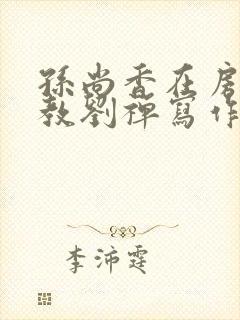 孫尚香在房
教劉禪寫作
李沛霆